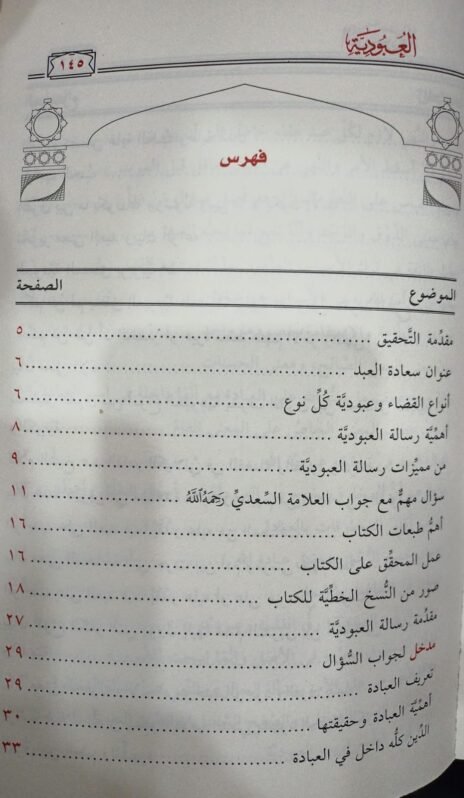 العُبُودِيَّة
١٤٥
فهرس
الموضوع الصفحة
مقدِّمة التَّحقيق ٥
عنوان سعادة العبد ٦
أنواع القضاء وعبوديَّة كُلِّ نوع ٦
أهمِّيَّة رسالة العبوديَّة ٨
من مميِّزات رسالة العبوديَّة ٩
سؤال مهمٌّ مع جواب العلامة السّعديِّ رَحِمَهُ ٱللَّهُ ١١
أهمُّ طبعات الكتاب ١٦
عمل المحقِّق على الكتاب ١٦
صور من النُّسخ الخطِّيَّة للكتاب ١٨
مقدِّمة رسالة العبوديَّة ٢٧
مدخل لجواب السُّؤال ٢٩
تعريف العبادة ٢٩
أهمِّيَّة العبادة وحقيقتها ٣٠
الدِّين كلُّه داخل في العبادة ٣٣